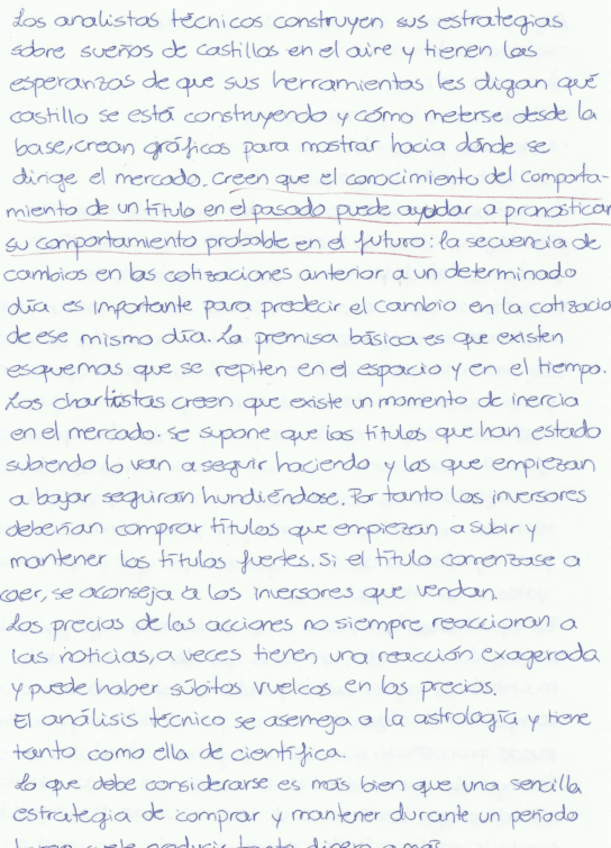 Los analistas técnicos construyen sus estrategias
sobre sueños de castillos en el aire y tienen las
esperanzas de que sus herramientas les digan qué
castillo se está construyendo y cómo meterse desde la
base, crean gráficos para mostrar hacia dónde se
dirige el mercado. Creen que el conocimiento del comporta-
miento de un título en el pasado puede ayudar a pronosticar
su comportamiento probable en el futuro: la secuencia de
cambios en las cotizaciones anterior a un determinado
día es importante para predecir el cambio en la cotizació
de ese mismo día. La premisa básica es que existen
esquemas que se repiten en el espacio y en el tiempo.
Los chartistas creen que existe un momento de inercia
en el mercado. Se supone que los títulos que han estado
subiendo lo van a seguir haciendo y los que empiezan
a bajar seguirán hundiéndose. Por tanto los inversores
deberían comprar títulos que empiezan a subir y
mantener los títulos fuertes. Si el título comenzase a
caer, se aconseja a los inversores que vendan.
Los precios de las acciones no siempre reaccionan a
las noticias, a veces tienen una reacción exagerada
y puede haber súbitos vuelcos en los precios.
El análisis técnico se asemeja a la astrología y tiene
tanto como ella de científica.
Lo que debe considerarse es más bien que una sencilla
estrategia de comprar y mantener durante un período
suele producir tanto dinero o más